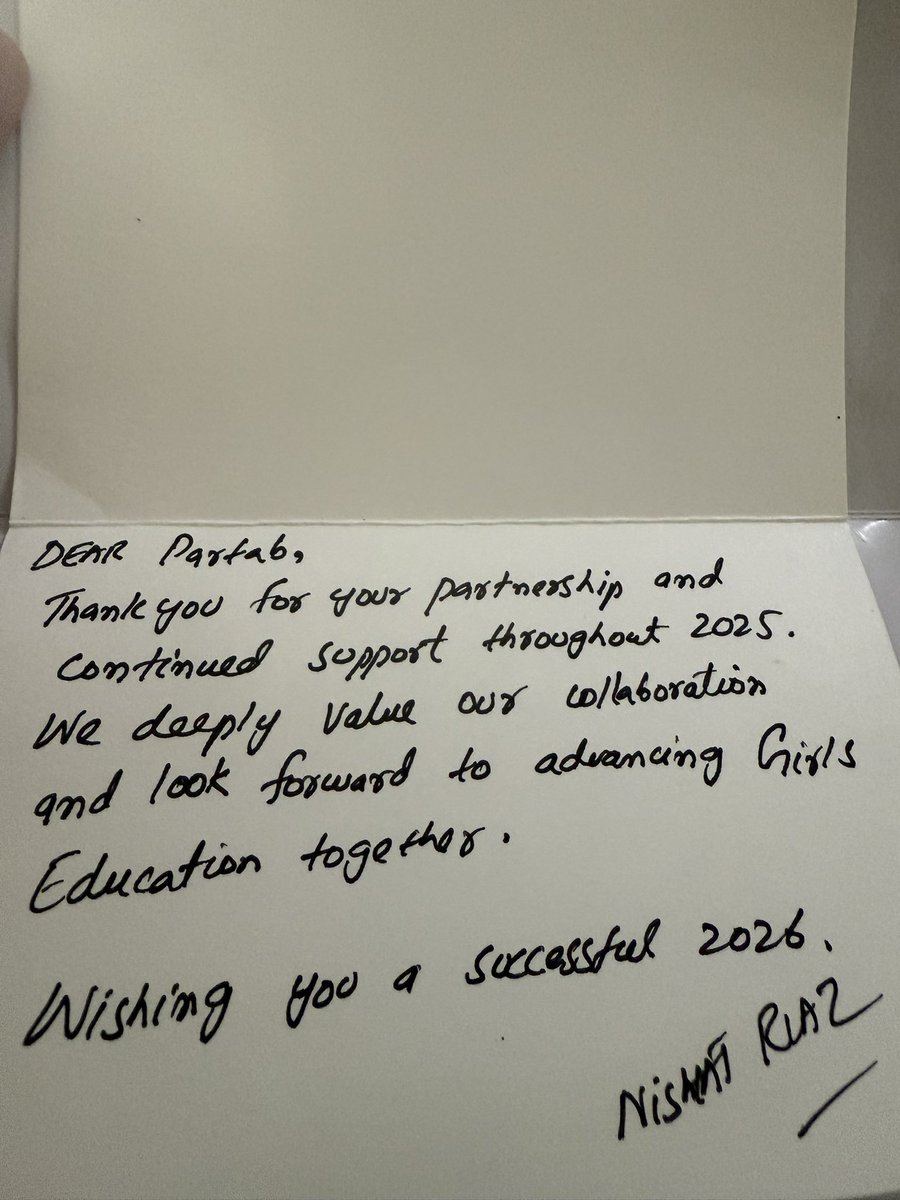 DEAR Partab,
Thank you for your partnership and
continued support throughout 2025.
We deeply value our collaboration
and look forward to advancing Girls
Education together.
Wishing you a successful 2026.
NISHAT RIAZ